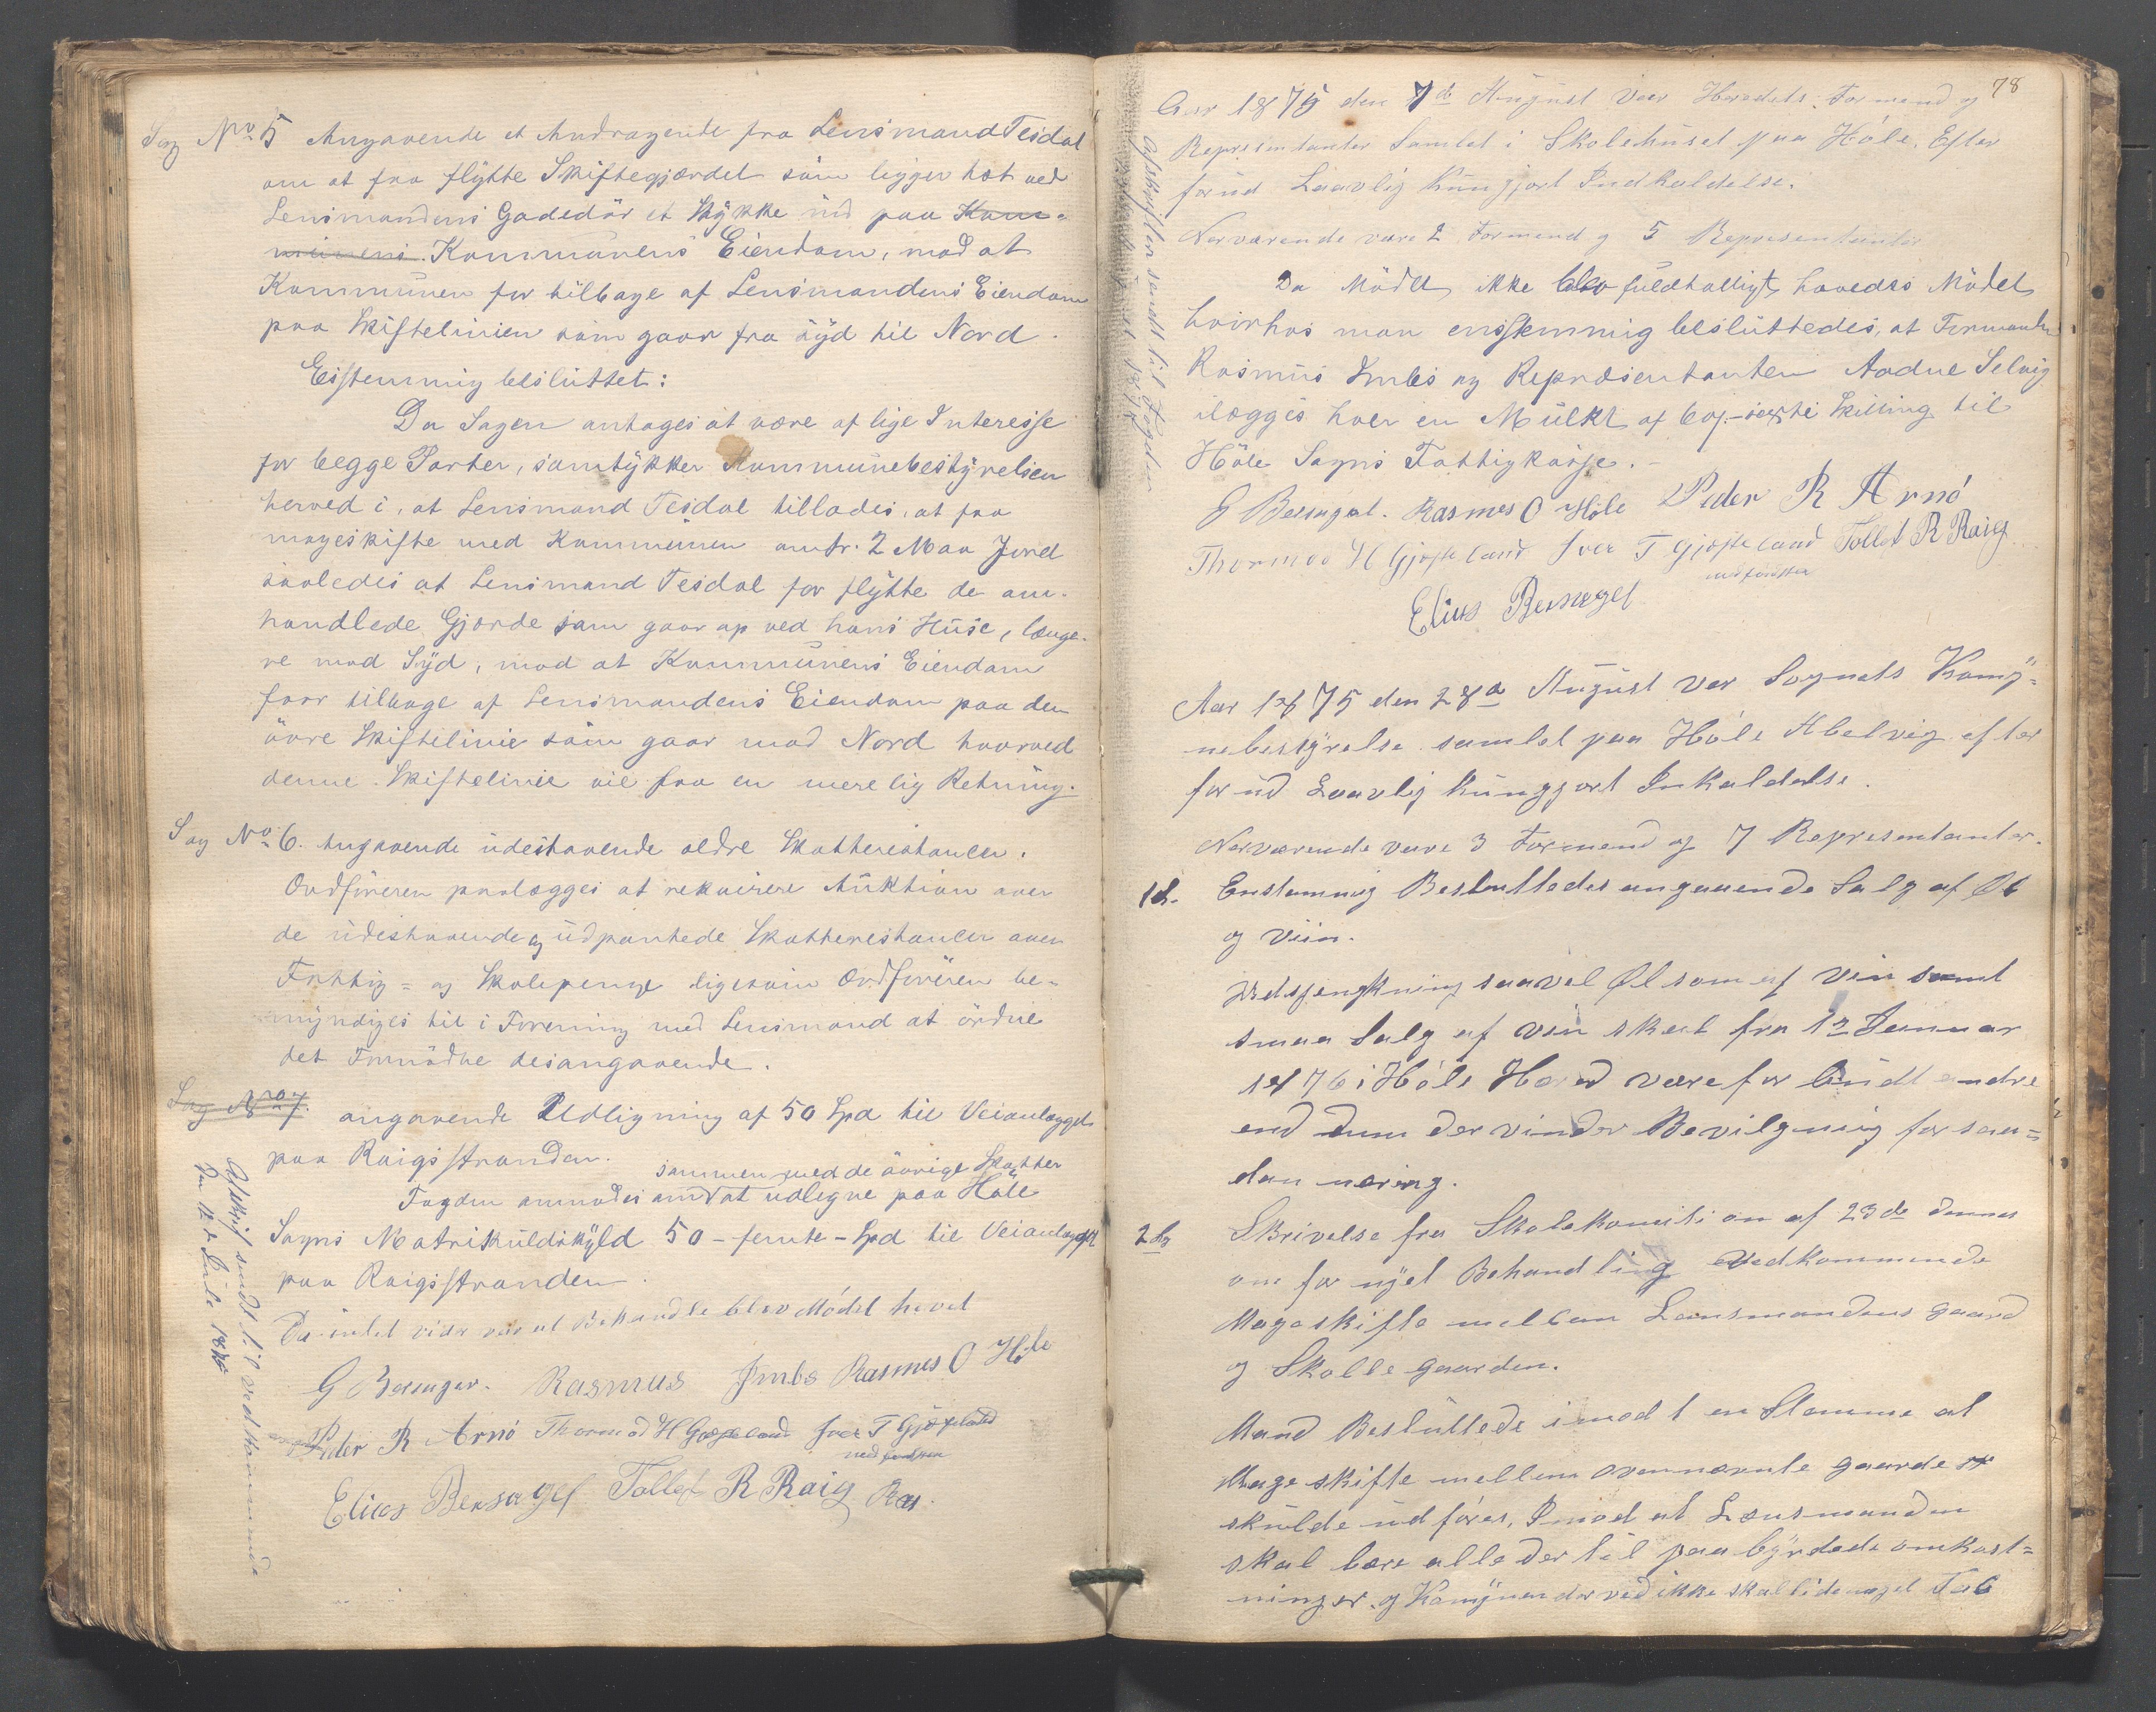 Sag No 5 Angaaende et Andragende fra Lensmand Tesdal
om at faa flÿtte Skiftegjærdet som ligger tæt ved
Lensmandens Gadedör et Stÿkke ind paa Kom-
munens. Kommunens Eiendom, mod at
Kommunen faar tilbage af Lensmandens Eiendom
paa Skiftelinien som gaar fra sÿd til Nord.
Eistemmig besluttet:
Da Sagen antages at være af lige Interesse
for begge Parter, samtÿkker Kommunebestÿrelsen
herved i, at Lensmand Tesdal tillades, at faa
mageskifte med Kommunen omtr. 2 Maa Jord
saaledes at Lensmand Tesdal faar flÿtte de om-
handlede Gjærde som gaar op ved hans Huse, længe-
re mod Sÿd, mod at Kommunens Eiendom
faar tilbage af Lensmandens Eiendom paa den
övre Skiftelinie som gaar mod Nord hvorved
denne Skiftelinie vil faa en mere lig Retning.
Sag No 6. Angaaende udestaaende ældre Skatterestancer.
Ordföreren paalægges at rekvirere Auktion over
de udestaaende og udpantede Skatterestancer over
Fattig- og Skolepenge ligesom Ordföreren be-
mÿndiges til i Forening med Lensmand at ordne
det Fornödne desangaaende.
Sag No 7. angaaende Udligning af 50 Spd til Veianlægget
paa Raigsstranden.
sammen med de övrige Skatter
Fogden anmodes om at udligne paa Höle
Sogns Matrikulskÿld 50 - femte - Spd til Veianlægget
paa Raigsstranden.
Da intet vider var at Behandle blev Mödet hævet
G Bersagel. Rasmus Jmbs Rasmus O Höle
Peder R Arnö Thormod H Gjøseland Iver T Gjøseland
med paaholden
Elias Bersagel Tollef R Raig Ras.
Afskrif sendt til vedkommende
den 12te Juli 1875
78
Aar 1875 den 7de August var Heredets Formend og
Representanter Samlet i Skolehuset paa Höle, Efter
forud Laavlig Kungjort Indkaldelse.
Nerværende vare 2 Formend og 5 Representanter
Da Mödet ikke blev fuldtalligt, hævedes Mödet
hvorhos man enstemmig besluttedes, at Formanden
Rasmus Imbs og Repræsentanten Aadne Selvig
ilægges hver en Mulkt af 60/- sexti Skilling til
Höle Sogns Fattigkasse.
G Bersagel. Rasmus O Höle Peder R Arnö
Thormod H Gjøseland Iver T Gjøseland Tollef R Raig
Elias Bersagel
Afskrifter sendt til Fogden
Aar 1875 den 28de August var Sognets Komÿ-
nebestÿrelse samlet paa Höle Abelvig efter
forud Laavlig kungjort Inkaldelse.
Nerværende vare 3 Formend og 7 Representanter.
1ste Enstemmig Besluttedes angaaende Salg af Øl
og Viin.
Udsjenkning saavel Øl som af Vin samt
smaa Salg af vin skal fra 1ste Januar
1876 i Höle Hered være for budt andre
end dem der vinder Bevilgning for saa-
dan næring.
2den Skrivelse fra Skolekomisionen af 23de dennes
om for nÿet Behandling vedkommende
Mageskifte mellem Lensmandens gaard
og Skolle gaarden.
Mand Besluttede imod 1 en Stemme at
Mageskifte mellem ovennævnte gaarder
skulde udføres, Imod at Lensmanden
skal bære alle der til paa bÿrdede omkost-
ninger og Komÿnen der ved ikke skal lide noget Tab